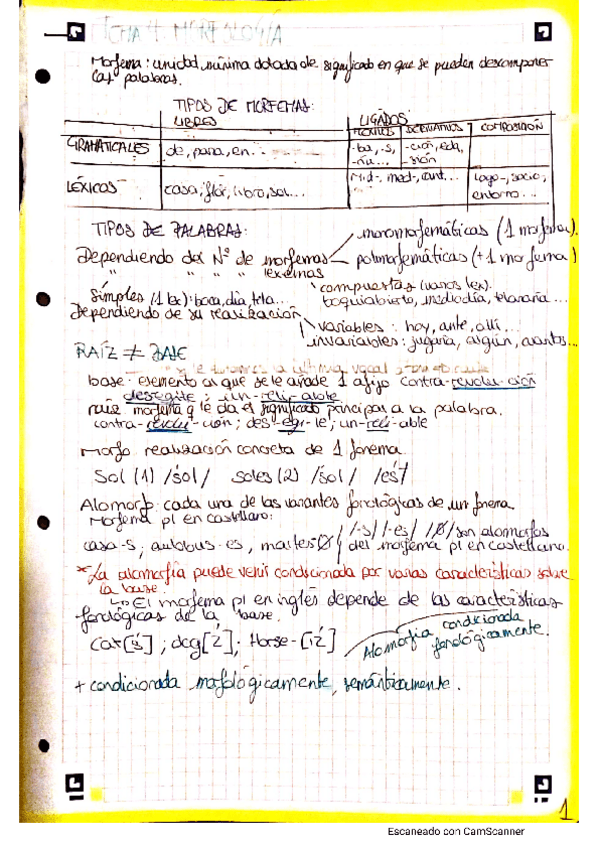 TEMA 4: MORFOLOGÍA
Morfema: unidad mínima dotada de significado en que se pueden descomponer
las palabras.
TIPOS DE MORFEMAS:
LIBRES LIGADOS
FLEXIVOS DERIVATIVOS COMPOSICIÓN
GRAMATICALES de, para, en... -ba, -s, -ción, -eda,
-sión
LÉXICOS casa, flor, libro, sol... med-, cant... logo-, socio,
entorno...
TIPOS DE PALABRAS:
monomorfemáticas (1 morfema).
Dependiendo del Nº de morfemas polimorfemáticas (+1 morfema)
" " " " lexemas
compuestas (varios lex).
Simples (1 lex): boca, día, tela... boquiabierto, mediodía, telaraña...
Dependiendo de su realización
variables: hoy, ante, allí...
invariables: jugaría, algún, cuantos...
RAÍZ ≠ BASE
la última vocal
base: elemento al que se le añade 1 afijo contra-revolu-ción
; un-reli-able
raíz: morfema q le da el significado principal a la palabra.
contra-revolu-ción; des-egr-le; un-reli-able
Morfo: realización concreta de 1 fonema.
Sol (1) /sól/ soles (2) /sól/ /es/
Alomorfo: cada una de las variantes fonológicas de un fonema.
Morfema pl en castellano:
/-s/ /-es/ /Ø/ son alomorfos
casa-s, autobus-es, martes-Ø del morfema pl en castellano.
*La alomorfia puede venir condicionada por varias características sobre
la base.
↳ El morfema pl en inglés depende de las características
fonológicas de la base.
Cat[s]; dog[z]; Horse-[iz] Alomorfia condicionada
fonológicamente.
+ condicionada morfológicamente, semánticamente.
1
Escaneado con CamScanner